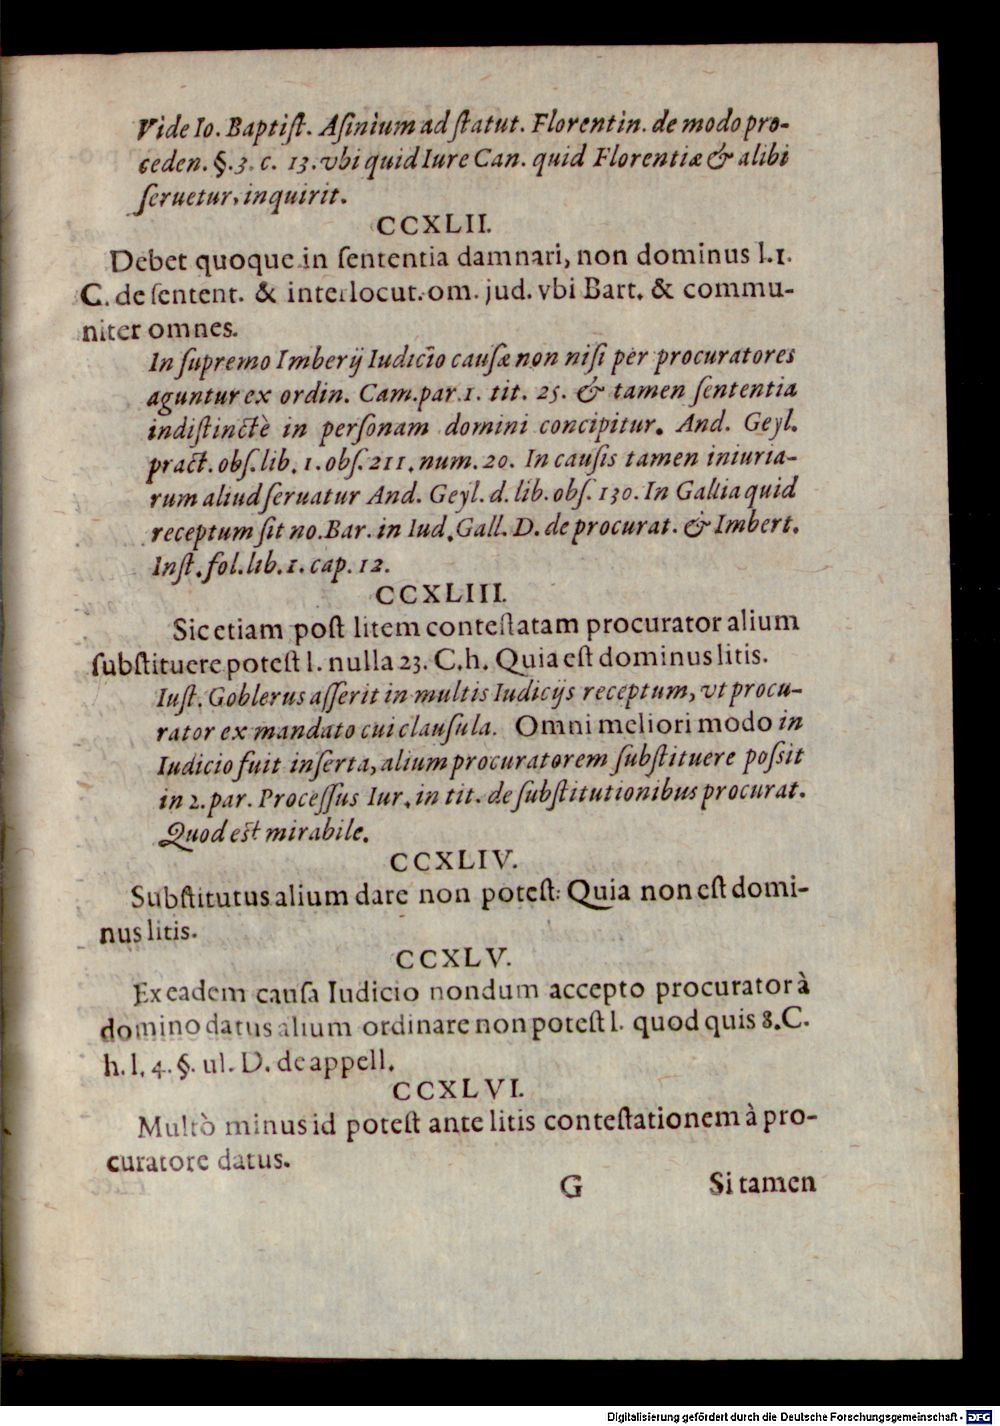 Vide Io. Baptiſt. Aſinium ad ſtatut. Florentin. de modo pro-
ceden. §. 3. c. 13. vbi quid Iure Can. quid Florentiæ & alibi
ſeruetur, inquirit.
CCXLII.
Debet quoque in ſententia damnari, non dominus l. 1.
C. de ſentent. & interlocut. om. jud. vbi Bart. & commu-
niter omnes.
In ſupremo Imberij Iudicio cauſæ non niſi per procuratores
aguntur ex ordin. Cam. par. 1. tit. 25. & tamen ſententia
indiſtinctè in perſonam domini concipitur. And. Geyl.
pract. obſ. lib. 1. obſ. 211. num. 20. In cauſis tamen iniuria-
rum aliud ſeruatur And. Geyl. d. lib. obſ. 130. In Gallia quid
receptum ſit no. Bar. in Iud. Gall. D. de procurat. & Imbert.
Inſt. fol. lib. 1. cap. 12.
CCXLIII.
Sic etiam poſt litem conteſtatam procurator alium
ſubſtituere poteſt l. nulla 23. C. h. Quia eſt dominus litis.
Iuſt. Goblerus aſſerit in multis Iudicijs receptum, vt procu-
rator ex mandato cui clauſula. Omni meliori modo in
Iudicio fuit inſerta, alium procuratorem ſubſtituere poſsit
in 2. par. Proceſſus Iur. in tit. de ſubſtitutionibus procurat.
Quod est mirabile.
CCXLIV.
Subſtitutus alium dare non poteſt: Quia non eſt domi-
nus litis.
CCXLV.
Ex eadem cauſa Iudicio nondum accepto procurator à
domino datus alium ordinare non poteſt l. quod quis 8. C.
h. l. 4. §. ul. D. de appell.
CCXLVI.
Multò minus id poteſt ante litis conteſtationem à pro-
curatore datus.
G Si tamen
Digitalisierung gefördert durch die Deutsche Forschungsgemeinschaft - DFG